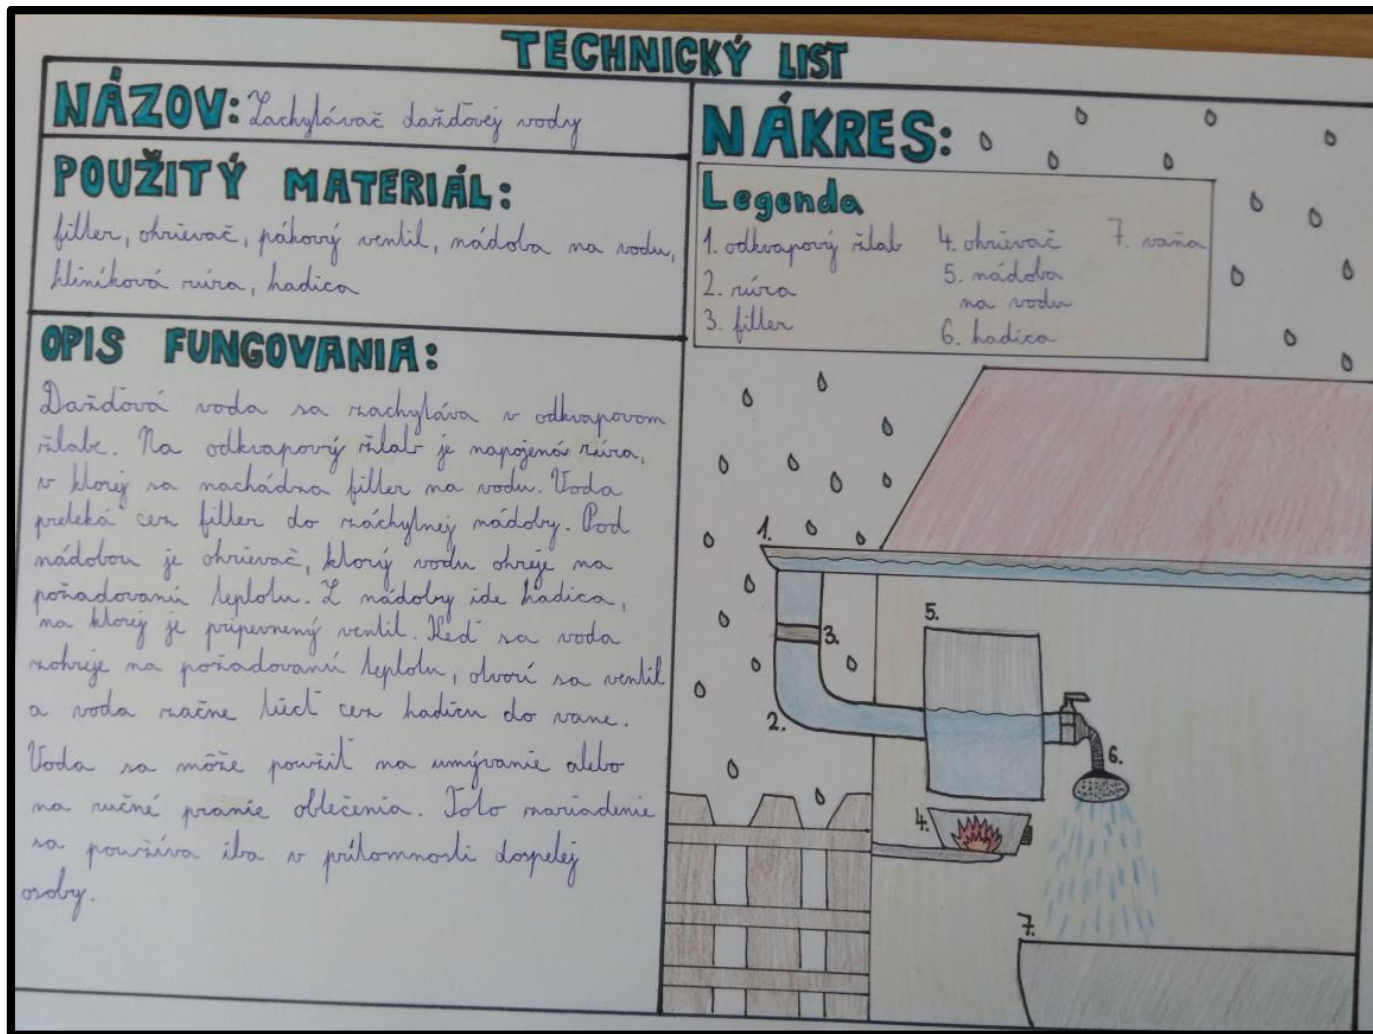 TECHNICKÝ LIST
NÁZOV: Zachytávač dažďovej vody
POUŽITÝ MATERIÁL:
filter, ohrievač, pákový ventil, nádoba na vodu,
hliníková rúra, hadica
OPIS FUNGOVANIA:
Dažďová voda sa zachytáva v odkvapovom
žlabe. Na odkvapový žlab je napojená rúra,
v ktorej sa nachádza filter na vodu. Voda
preteká cez filter do záchytnej nádoby. Pod
nádobou je ohrievač, ktorý vodu ohreje na
požadovanú teplotu. Z nádoby ide hadica,
na ktorej je pripevnený ventil. Keď sa voda
zohreje na požadovanú teplotu, otvorí sa ventil
a voda začne tiecť cez hadicu do vane.
Voda sa môže použiť na umývanie alebo
na ručné pranie oblečenia. Toto zariadenie
sa používa iba v prítomnosti dospelej
osoby.
NÁKRES:
Legenda
1. odkvapový žlab
2. rúra
3. filter
4. ohrievač
5. nádoba
na vodu
6. hadica
7. vaňa
1.
5.
3.
2.
6.
4.
7.